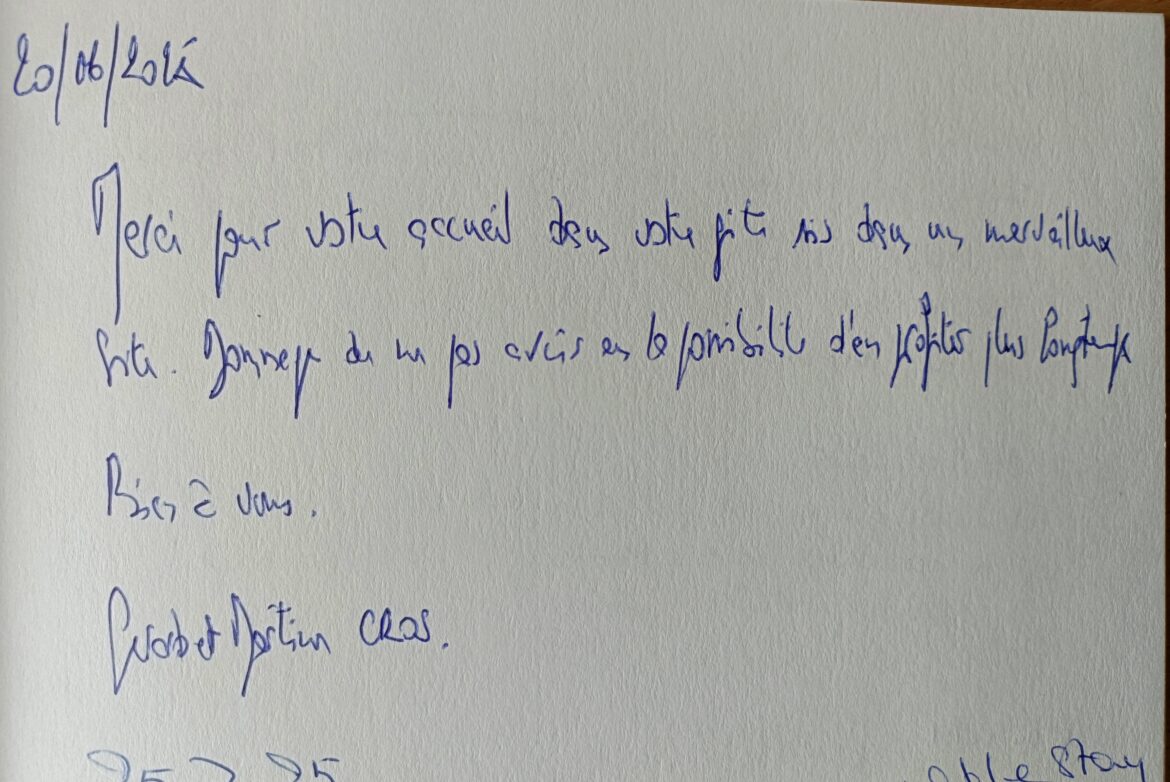 20/06/2024
Merci pour votre accueil dans votre gite sis dans un merveilleux
site. Dommage de ne pas avoir eu la possibilité d'en profiter plus longtemps
Bien à vous.
et Martine CROS.
25 7 25 able stay